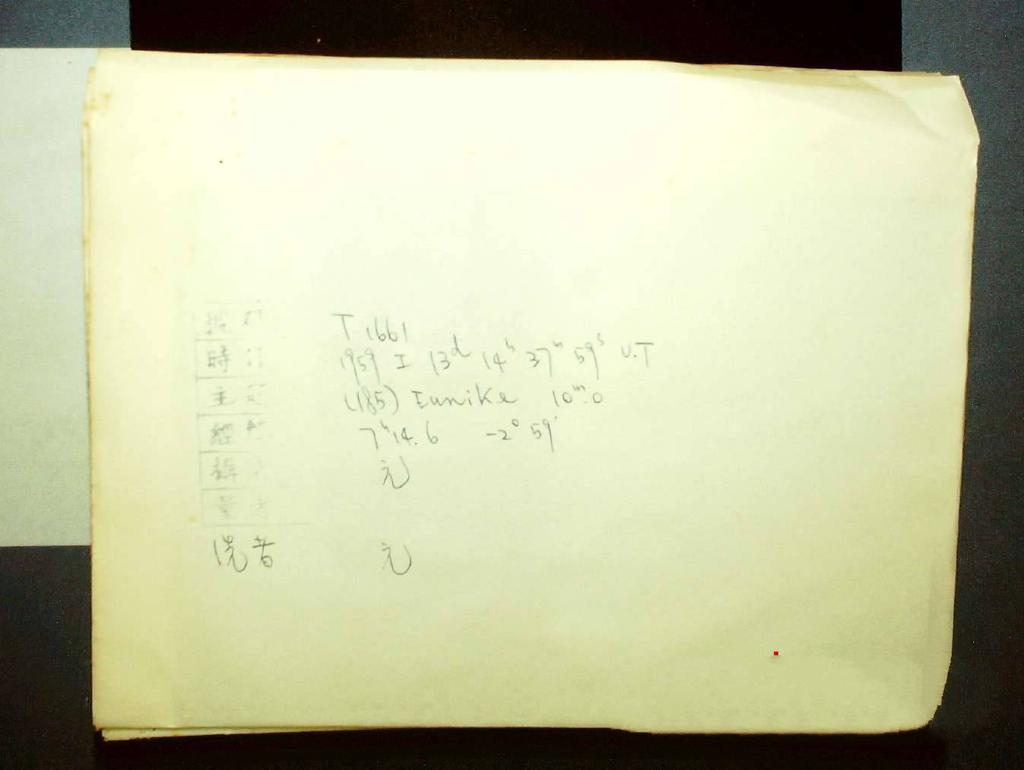 T 1661
時 1959 I 13d 14h 37m 59s U.T
主 (185) Eunike 10m.0
經 7h14.6 -2° 59'
元
洗者 元